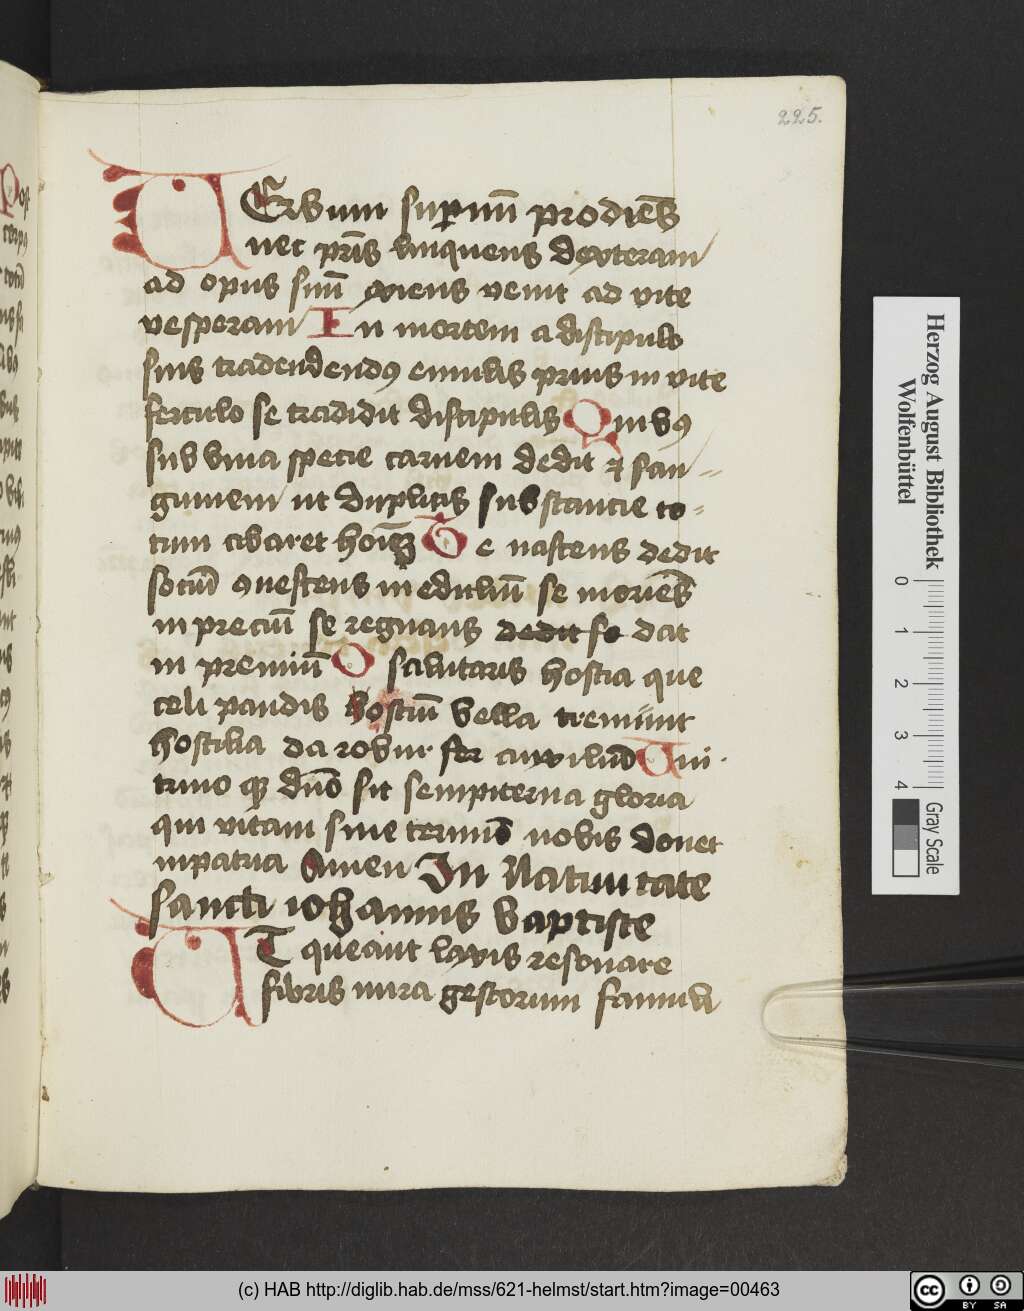 225.
VErbum supnū prodiēs
nec pr̄is linquens dexteram
ad opus suū exiens venit ad vite
vesperam In mortem a discipulo
suis tradendendꝯ emulis prius in vite
ferculo se tradidit discipulis Quibꝯ
sub bina specie carnem dedit ⁊ san=
guinem ut duplicis substancie to=
tum cibaret hoīꝫ Se nascens dedit
sociū ꝯuescens in edilliū se moriēs
in preciū se regnans dedit se dat
in premiū O salutaris hostia que
celi pandis hostiū bella premūnt
hostilia da robur fer auxiliū Uni
trino qꝫ dn̄o sit sempiterna gloria
qui vitam sine termīo nobis donet
in patria Amen In Natiuitate
sancti iohannis baptiste
UT queant laxis resonare
fibris mira gestorum famuli
Herzog August Bibliothek
Wolfenbüttel
0 1 2 3 4
Gray Scale
(c) HAB http://diglib.hab.de/mss/621-helmst/start.htm?image=00463
cc BY SA